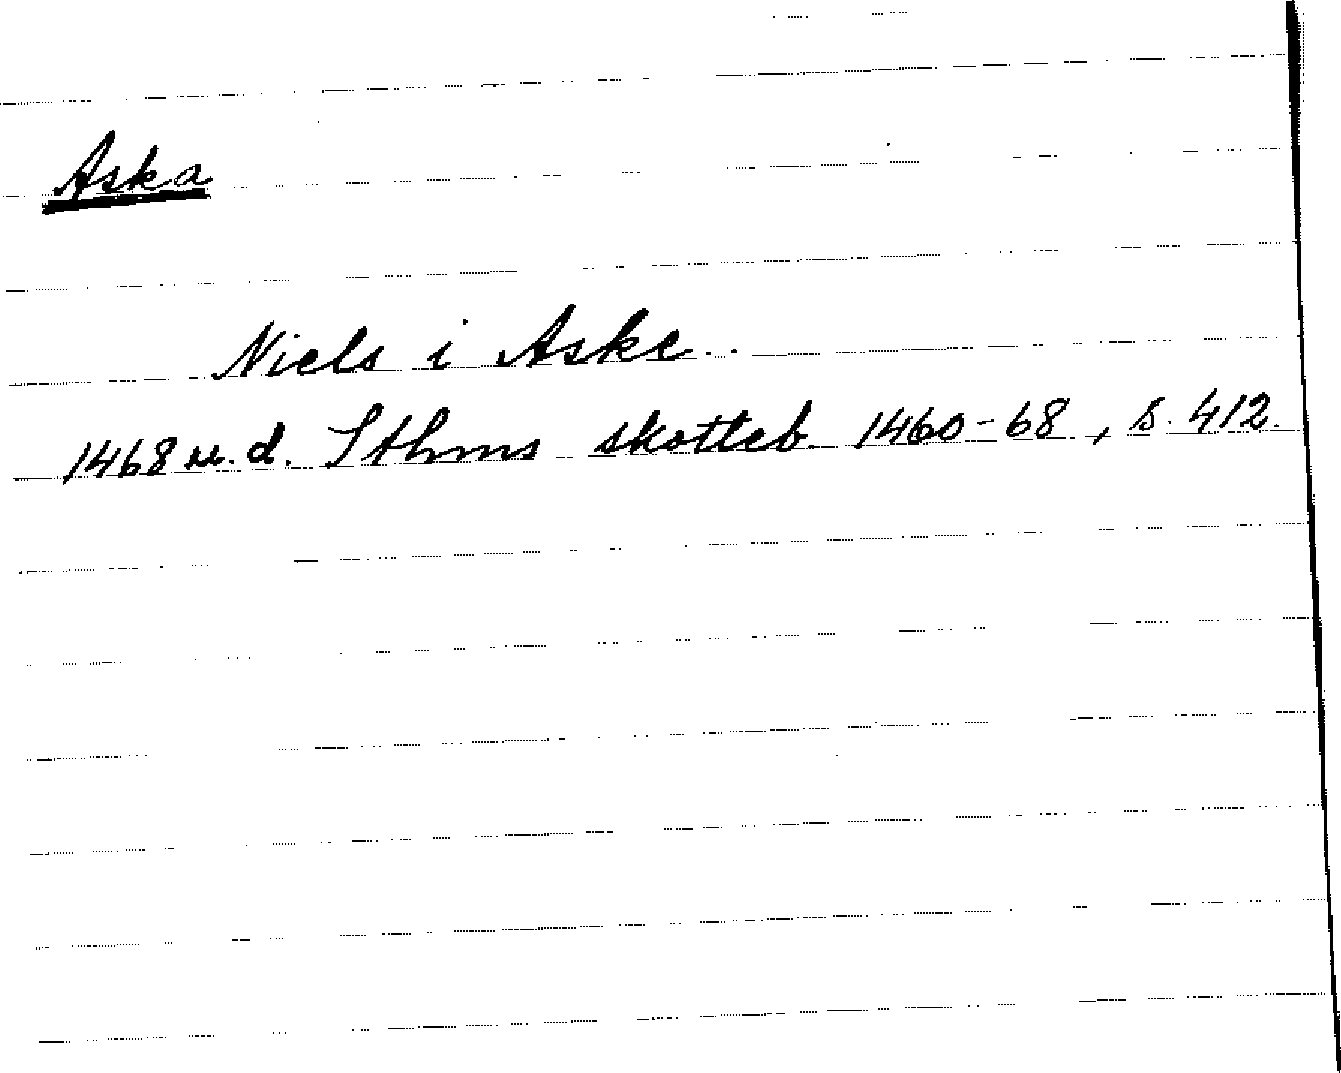 Aska
Niels i Aske
1468 u.d. Sthms skotteb. 1460-68, s. 412.